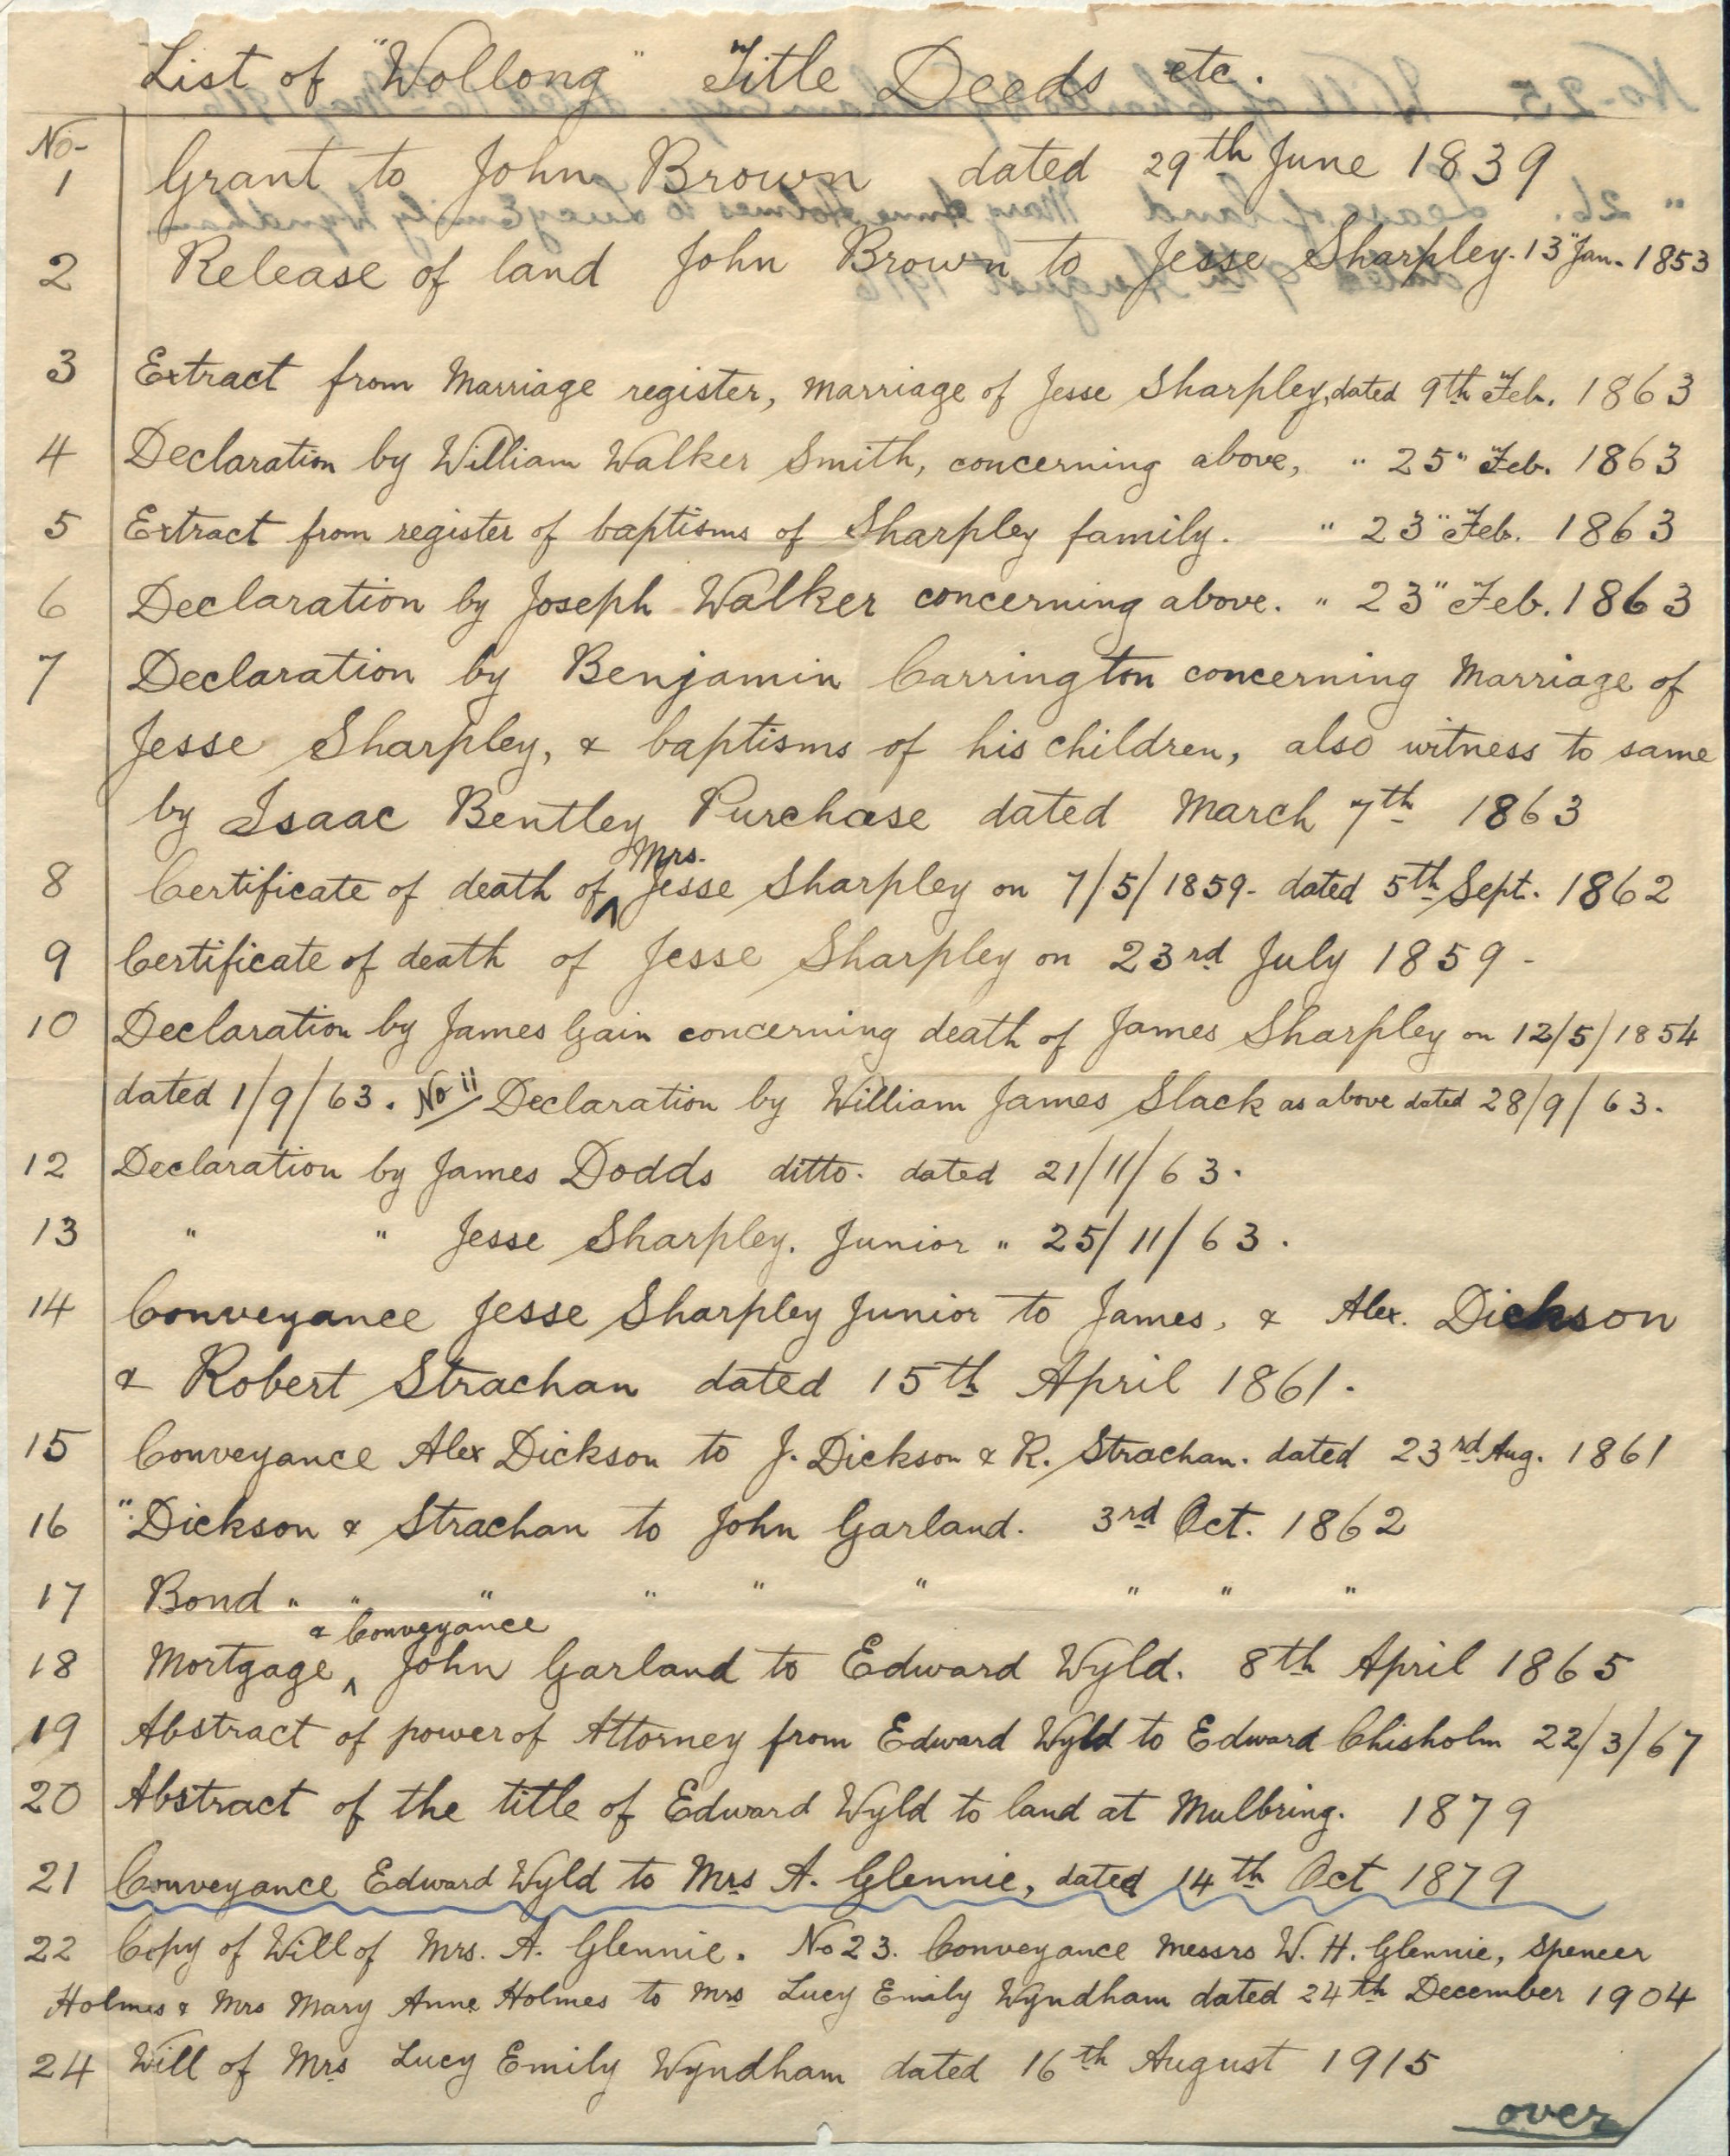 List of "Wollong" Title Deeds etc.
No-
1 Grant to John Brown dated 29th June 1839
2 Release of land John Brown to Jesse Sharpley. 13" Jan. 1853
3 Extract from Marriage register, marriage of Jesse Sharpley, dated 9th Feb. 1863
4 Declaration by William Walker Smith, concerning above, " 25" Feb. 1863
5 Extract from register of baptisms of Sharpley family. " 23" Feb. 1863
6 Declaration by Joseph Walker concerning above. " 23" Feb. 1863
7 Declaration by Benjamin Carrington concerning Marriage of
Jesse Sharpley, & baptisms of his children, also witness to same
by Isaac Bentley Purchase dated March 7th 1863
8 Certificate of death of ^ Mrs. Jesse Sharpley on 7/5/1859- dated 5th Sept. 1862
9 Certificate of death of Jesse Sharpley on 23rd July 1859 -
10 Declaration by James Gain concerning death of James Sharpley on 12/5/1854
dated 1/9/63. No 11 Declaration by William James Slack as above dated 28/9/63.
12 Declaration by James Dodds ditto. dated 21/11/63.
13 " " Jesse Sharpley. Junior " 25/11/63.
14 Conveyance Jesse Sharpley Junior to James, & Alex. Dickson
& Robert Strachan dated 15th April 1861.
15 Conveyance Alex Dickson to J. Dickson & R. Strachan. dated 23rd Aug. 1861
16 " Dickson & Strachan to John Garland. 3rd Oct. 1862
17 Bond " " " " " " " " "
18 Mortgage ^ & Conveyance John Garland to Edward Wyld. 8th April 1865
19 Abstract of power of Attorney from Edward Wyld to Edward Chisholm 22/3/67
20 Abstract of the title of Edward Wyld to land at Mulbring. 1879
21 Conveyance Edward Wyld to Mrs A. Glennie, dated 14th Oct 1879
22 Copy of Will of Mrs. A. Glennie. No 23. Conveyance Messrs W. H. Glennie, Spencer
Holmes & Mrs Mary Anne Holmes to Mrs Lucy Emily Wyndham dated 24th December 1904
24 Will of Mrs Lucy Emily Wyndham dated 16th August 1915
over